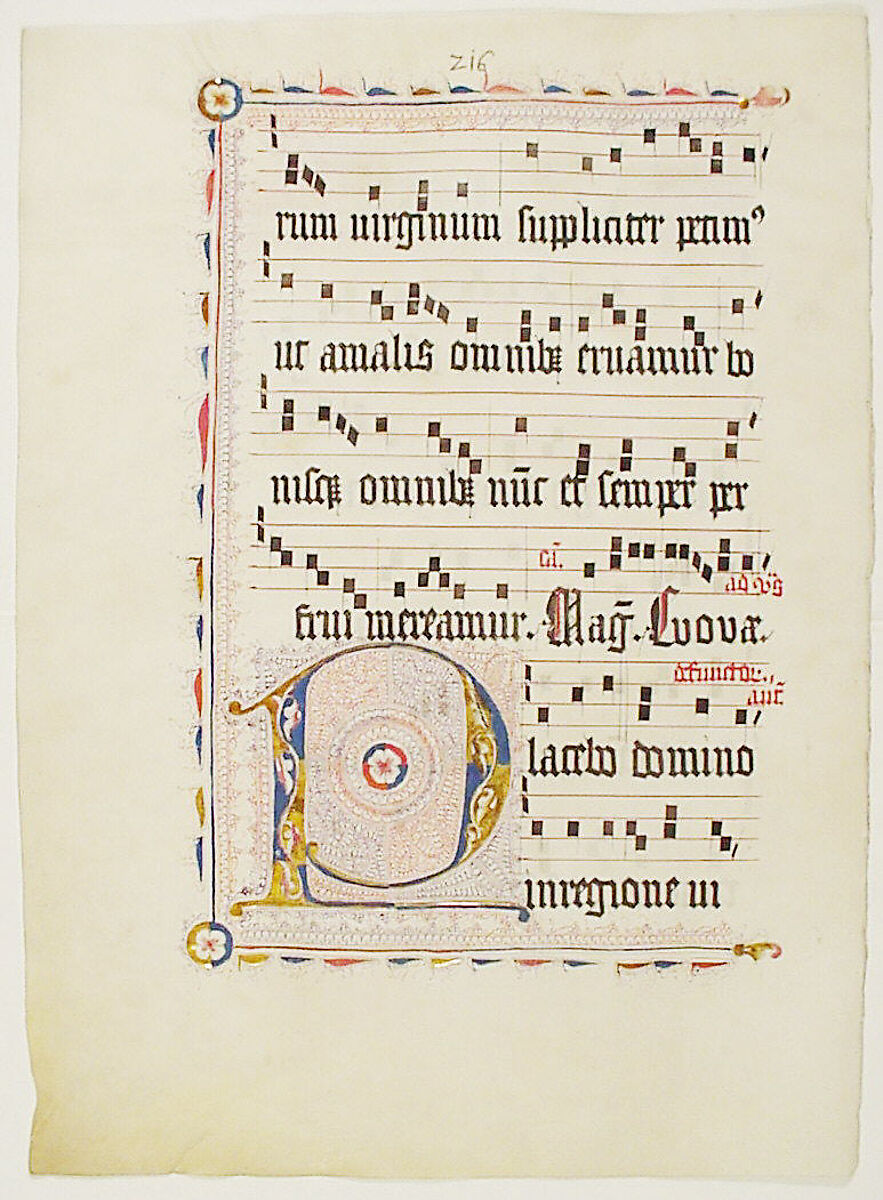 216
rum uirginum suppliciter petimꝰ
ut a malis omnibꝫ eruamur bo
nisqꝫ omnibꝫ nūc et semper per
frui mereamur. Mag̅. Euouæ.
ad vꝭ̅
defunctoꝝ.
ant̅
Placebo domino
in regione ui